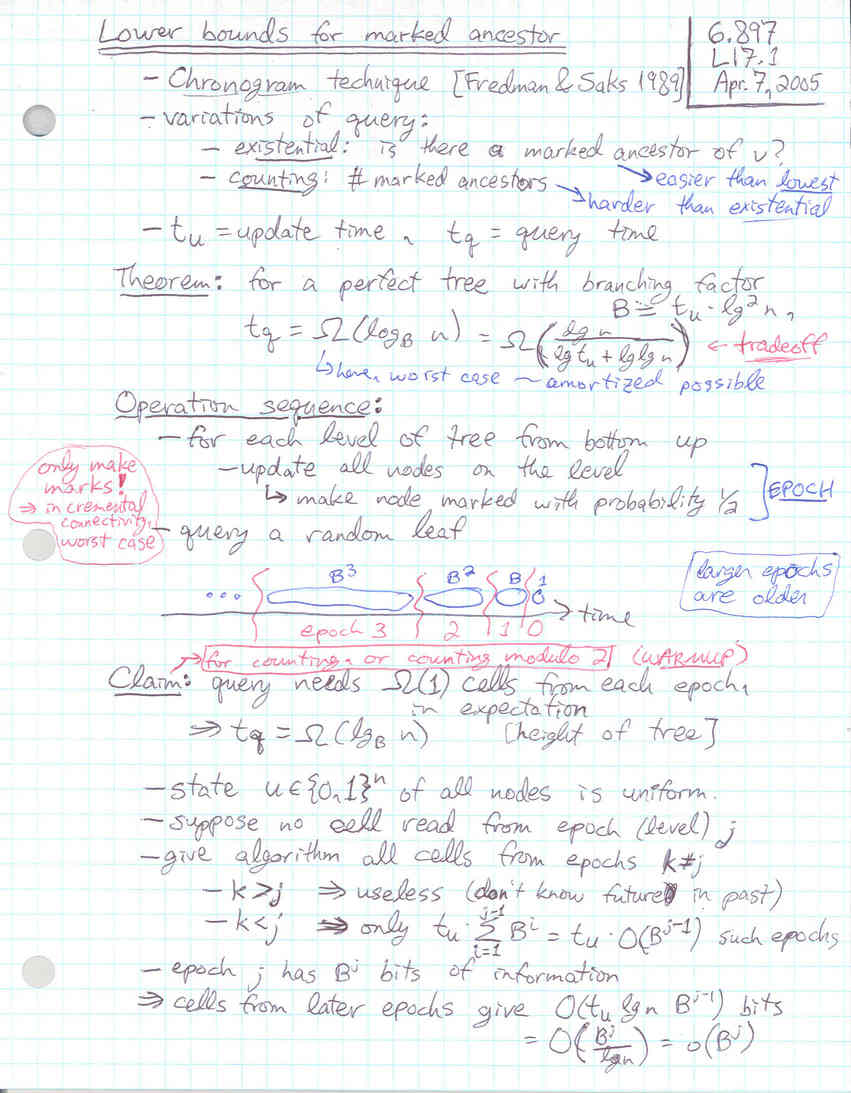 Lower bounds for marked ancestor
6.897
L17.1
Apr. 7, 2005
- Chronogram technique [Fredman & Saks 1989]
- variations of query:
- existential: is there a marked ancestor of v?
↘ easier than lowest
- counting: # marked ancestors
↘ harder than existential
- tu = update time, tq = query time
Theorem: for a perfect tree with branching factor
B ≅ tu · lg² n,
tq = Ω(log_B n) = Ω(lg n / (lg tu + lg lg n)) ← tradeoff
↳ here, worst case ~ amortized possible
Operation sequence:
- for each level of tree from bottom up
- update all nodes on the level
↳ make node marked with probability 1/2
] EPOCH
only make
marks!
⇒ incremental
connectivity,
worst case
- query a random leaf
... B³ B² B 1
→ time
epoch 3 | 2 | 1 | 0
larger epochs
are older
→ for counting, or counting modulo 2 (WARMUP)
Claim: query needs Ω(1) cells from each epoch,
in expectation
⇒ tq = Ω(lg_B n) [height of tree]
- state u ∈ {0,1}ⁿ of all nodes is uniform.
- suppose no cell read from epoch (level) j
- give algorithm all cells from epochs k ≠ j
- k > j ⇒ useless (don't know future in past)
- k < j ⇒ only tu · Σ_{i=1}^{j-1} B^i = tu · O(B^{j-1}) such epochs
- epoch j has B^j bits of information
⇒ cells from later epochs give O(tu lg n B^{j-1}) bits
= O(B^j / lg n) = o(B^j)